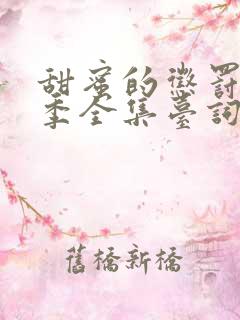 甜蜜的懲罰
季全集臺詞
舊橋新橋